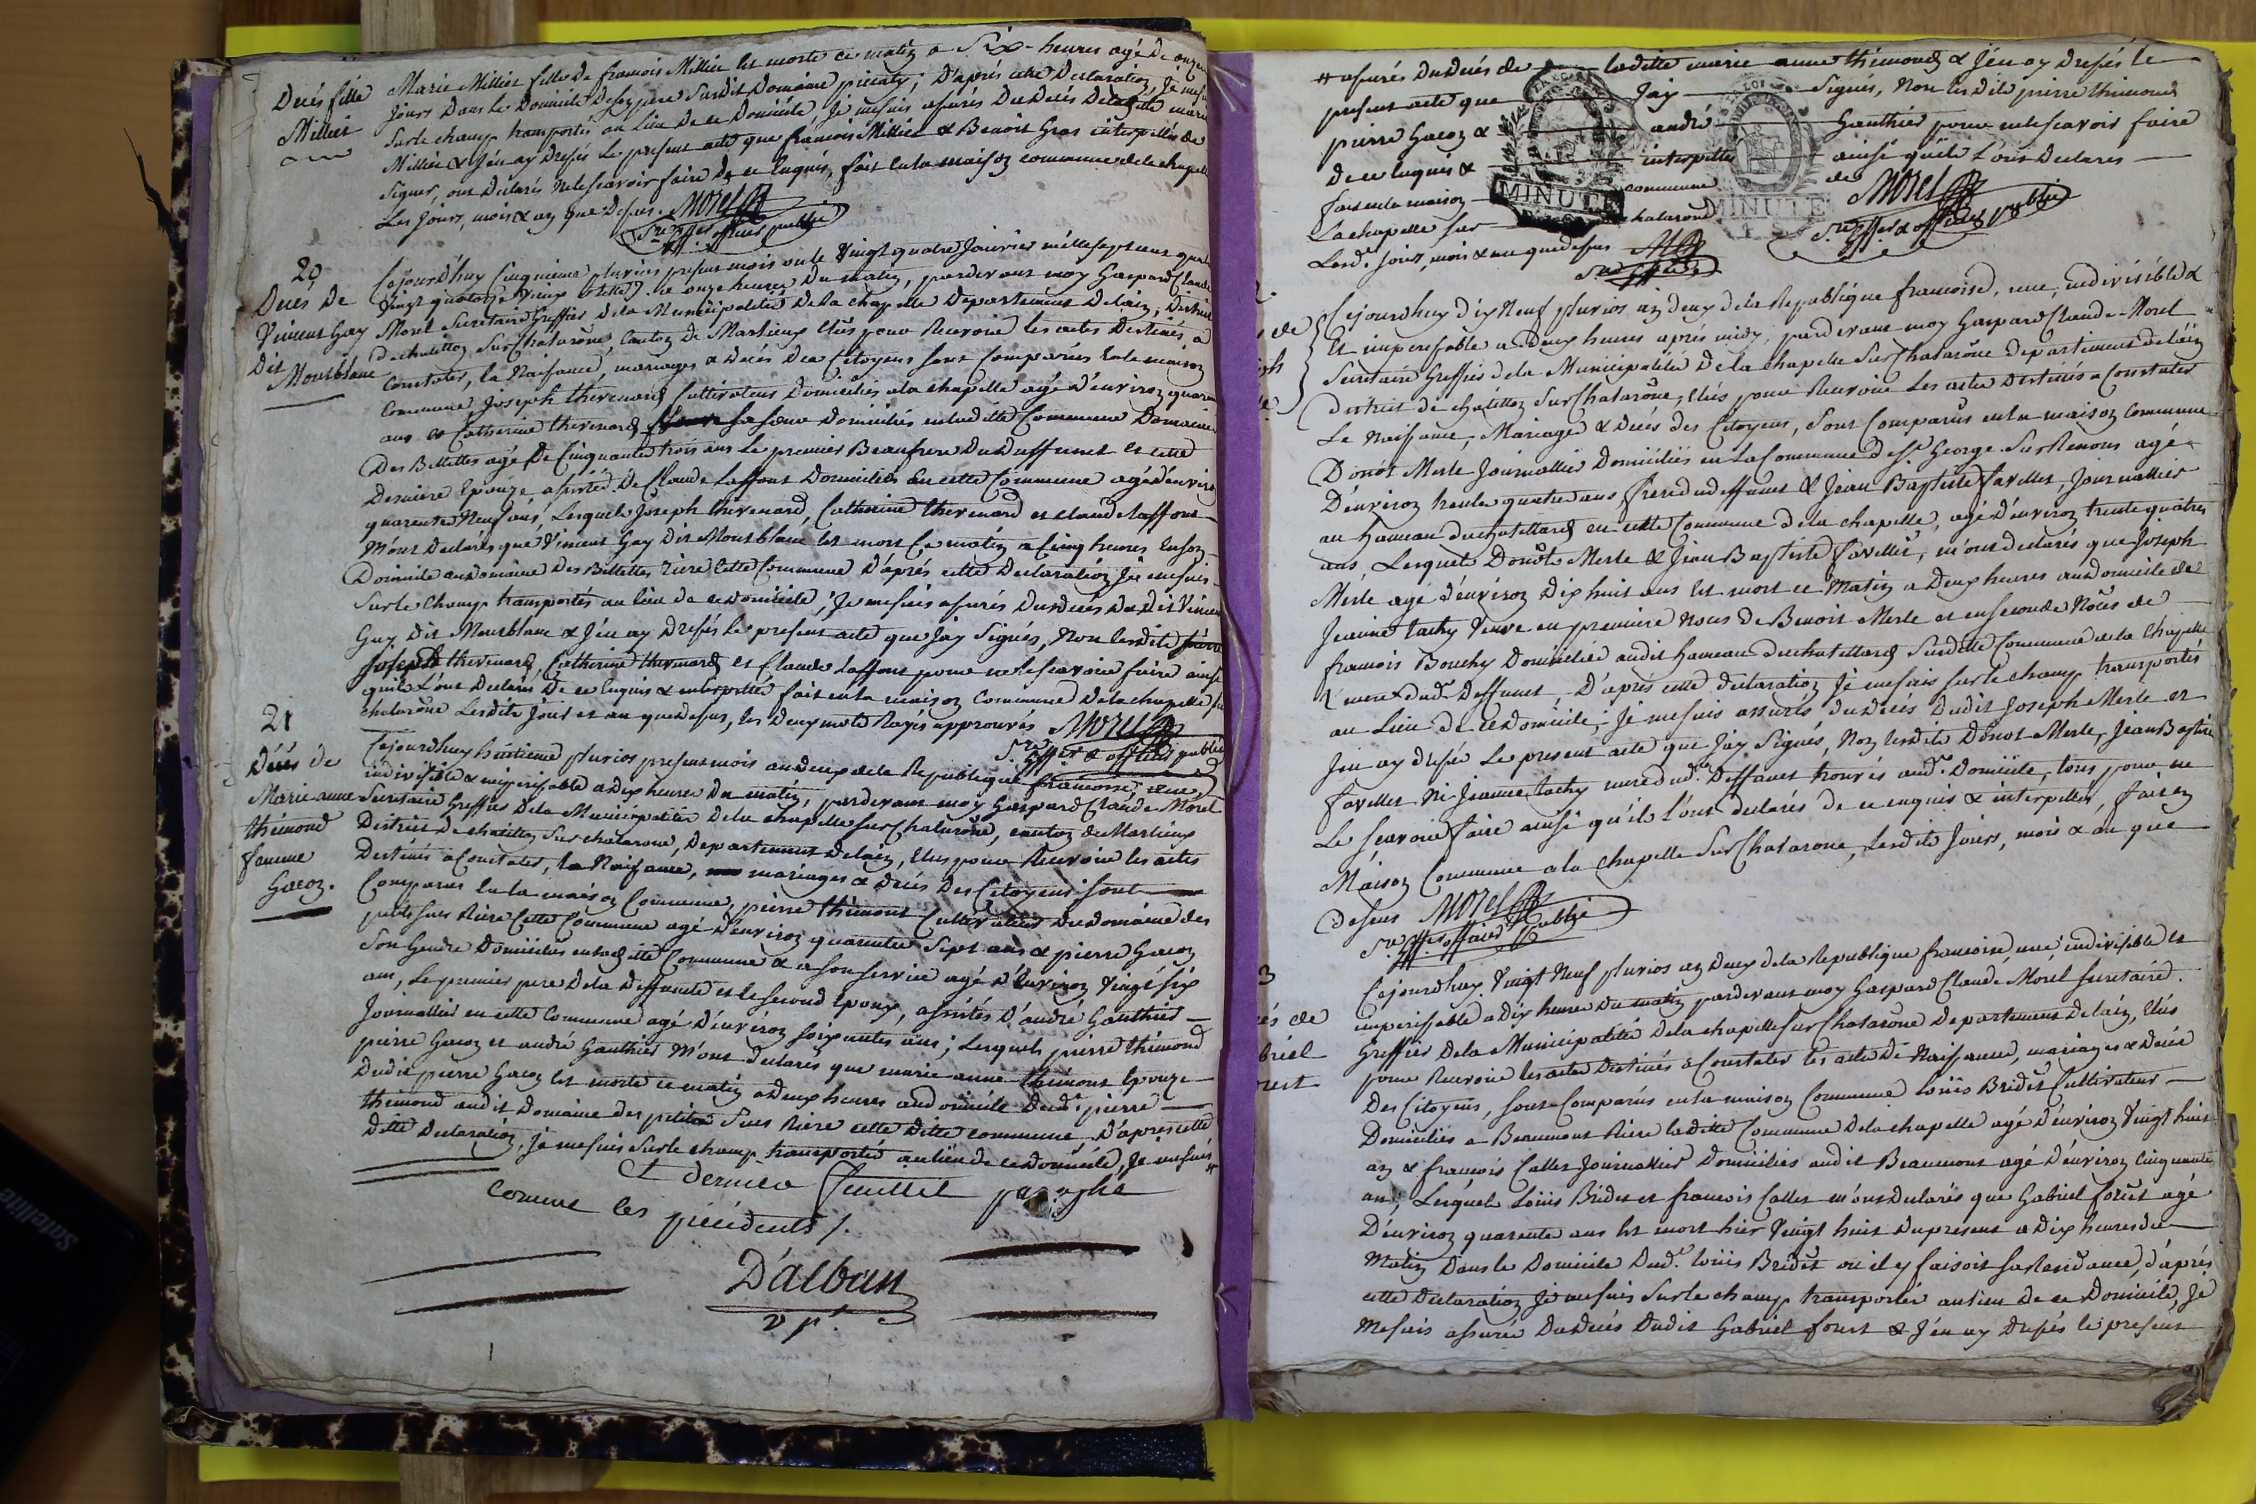 Décés fille
Millier
Marie Millier fille de francois Millier Est morte ce matin a Six heures agé de onze
jours Dans le Domicile De son pere Susdit Domaine D'aprés cette Declaration Je me suis
Sur le champ transportés au Lieu De ce Domicile, Je me suis assurés Du Décés De ladite marie
Millier & J'en ay Dressés Le present acte que francois Millier & Benoit Gras interpellés de
Signer, ont Declarés ne le scavoir faire De ce Enquis, fait En la maison commune de la chapelle
Les Jours, mois & an que Dessus. Morel
Sre Greffier officier public
20
Décés De
Vincent Gay
Dit
Montblanc
Cejourd'huy Cinquieme pluvios present mois ou le Vingt quatre Janvier mille sept cent quatre
Vingt quatorze a onze heures Du matin, pardevant moy Gaspard Claude
Morel Secretaire Greffier De la Municipalité De la chapelle Departement De lain, District
De chatillon Sur Chalarone, Canton De Marlieux Elus pour Recevoir les actes Destinés, a
Constater, la Naissance, mariages & Décés Des Citoyens sont Comparus En la maison
Commune Joseph thevenard Cultivateur Domiciliés a la chapelle agé D'environ quarante
ans et Catherine thevenard sa soeur Domiciliés en ladite Commune Domaine
Des Billettes agé De Cinquante trois ans Le premier Beaufrere Du Deffunt et cette
Derniere Epouze, assistés De Claude Laffont Domiciliés En cette Commune agé D'environ
quarente Neuf ans, Lesquels Joseph thevenard, Catherine thevenard et Claude Laffont
m'ont Declarés que Vincent Gay Dit Montblanc Est mort Ce matin a Cinq heures En son
Domicile au Domaine Des Billettes riere Cette Commune D'aprés cette Declaration Je me suis
Sur le Champ transportés au lieu de ce domicile, Je me suis assurés Du Décés Du Dit Vincent
Gay Dit Montblanc & J'en ay Dressés Le present acte que J'ay Signés, Non Lesdits
Joseph thevenard, Catherine thevenard et Claude Laffont pour ne le scavoir faire ainsi
qu'ils L'ont Declarés De ce Enquis & interpellés fait en la maison Commune De la chapelle sur
chalarone Lesdits Jour et an que dessus, les Deux mots Rayés approuvés Morel
Sre Greffier & officier public
21
Décés de
Marie anne
thimond
femme
Gacon.
Cejourd'huy huitieme pluvios present mois an deux de la Republique francoise, une,
indivisible & imperissable a dix heures Du matin, pardevant moy Gaspard Claude Morel
Secretaire Greffier De la Municipalité De la chapelle sur Chalarone, canton de Marlieux
District De chatillon Sur chalarone, Departement De lain, Elus pour Recevoir les actes
Destinés a Constater, la Naissance, mariages & Décés Des Citoyens Sont
Comparus En la maison Commune, pierre thimont Cultivateur Du Domaine des
petits Sues Riere Cette Commune agé D'environ quarante Sept ans & pierre Gacon
Son Gendre Domiciliés en ladite Commune & a son service agé D'Environ Vingt six
ans, Le premier pere De la Deffunte et le second Epoux, assistés D'andré Gauthier
Journallier en cette Commune agé D'environ soixante ans; Lesquels pierre thimond
pierre Gacon et andré Gauthier M'ont declarés que marie anne thimont Epouze
Dudit pierre Gacon Est morte ce matin a deux heures au domicile Dudt. pierre
thimond audit Domaine des petits Sues Riere cette Ditte commune, D'aprés cette
Ditte Declaration, je me suis Sur le champ transportés au lieu de ce domicile, Je me suis
Et dernier feuillet paraphé
Comme les précédents /.
D'alban
v pt.
assurés Du Décés de ladite marie anne thimond & J'en ay Dressés le
present acte que J'ay Signés, Non lesdits pierre thimond
pierre Gacon & andré Gauthier pour ne le scavoir faire
De ce Enquis & interpellés ainsi qu'ils L'ont Declarés
fait en la maison commune de
La chapelle sur chalarone
Lesd. Jours, mois & an que dessus
MINUTE
MINUTE
Morel
Sre Greffier & officier public
Cejourd'huy dix Neuf pluvios an deux de la Republique francoise, une, indivisible &
Et imperissable a Deux heures aprés midy, pardevant moy Gaspard Claude Morel
Secretaire Greffier de la Municipalité De la chapelle Sur Chalarone departement de lain
district de chatillon Sur Chalarone, Elus pour Recevoir Les actes Destinés a Constater
Le Naissance, Mariage & Décés des Citoyens, Sont Comparus en la maison Commune
Donot Merle Journallier Domiciliés en la Commune De St George Sur Renons agé
D'environ trente quatre ans, frere du deffunt & Jean Baptiste favellet Journallier
au Hameau du chatellard en cette Commune de la chapelle, agé D'environ trente quatre
ans Lesquels Donot Merle & Jean Baptiste favellet, m'ont declarés que Joseph
Merle agé d'environ Dix huit ans Est mort ce Matin a Deux heures au domicile de
Jeanne tachy Veuve en premiere Noces De Benoit Merle et en seconde Noces de
francois Bouchy Domiciliée audit hameau du chatellard Susditte Commune de la Chapelle
mere dudt. Deffunt. D'aprés cette declaration Je me suis sur le champ transportés
au Lieu de ce domicile; Je me suis assurés du décés Dudit Joseph Merle et
J'en ay dressé Le present acte que J'ay Signés, Non lesdits Donot Merle, Jean Baptiste
favellet Ni Jeanne tachy mere dudt. Deffunt trouvés audt. Domicile, tous pour ne
Le scavoir faire ainsi qu'ils L'ont declarés de ce enquis & interpellés, fait en
Maison Commune a la chapelle Sur Chalarone, Lesdits Jours, mois & an que
dessus Morel
Sre Greffier officier Public
3
és de
briel
rest
Cejourd'huy Vingt Neuf pluvios an Deux de la Republique francoise, une, indivisible et
imperissable a Dix heures Du matin pardevant moy Gaspard Claude Morel secretaire
Greffier De la Municipalité De la chapelle Sur Chalarone Departement De lain, Elus
pour Recevoir les actes Destinés a Constater les actes De Naissance, mariages & Décés
Des Citoyens, sont Comparus en la maison Commune Louis Bridet Cultivateur
Domiciliés a Beaumont Riere ladite Commune De la chapelle agé D'environ Vingt huit
an & francois Callet Journallier Domiciliés audit Beaumont agé D'environ Cinquante
an; Lesquels Louis Bridet et francois Callet m'ont Declarés que Gabriel foret agé
D'environ quarante ans Est mort hier Vingt huit du present a Dix heures du
Matin Dans le Domicile Dudt. Louis Bridet ou il y faisoit sa Residance, d'aprés
cette Declaration Je me suis Sur le champ transportés au lieu De ce Domicile, Je
me suis assurés Du Décés Dudit Gabriel foret & J'en ay Dressés le present